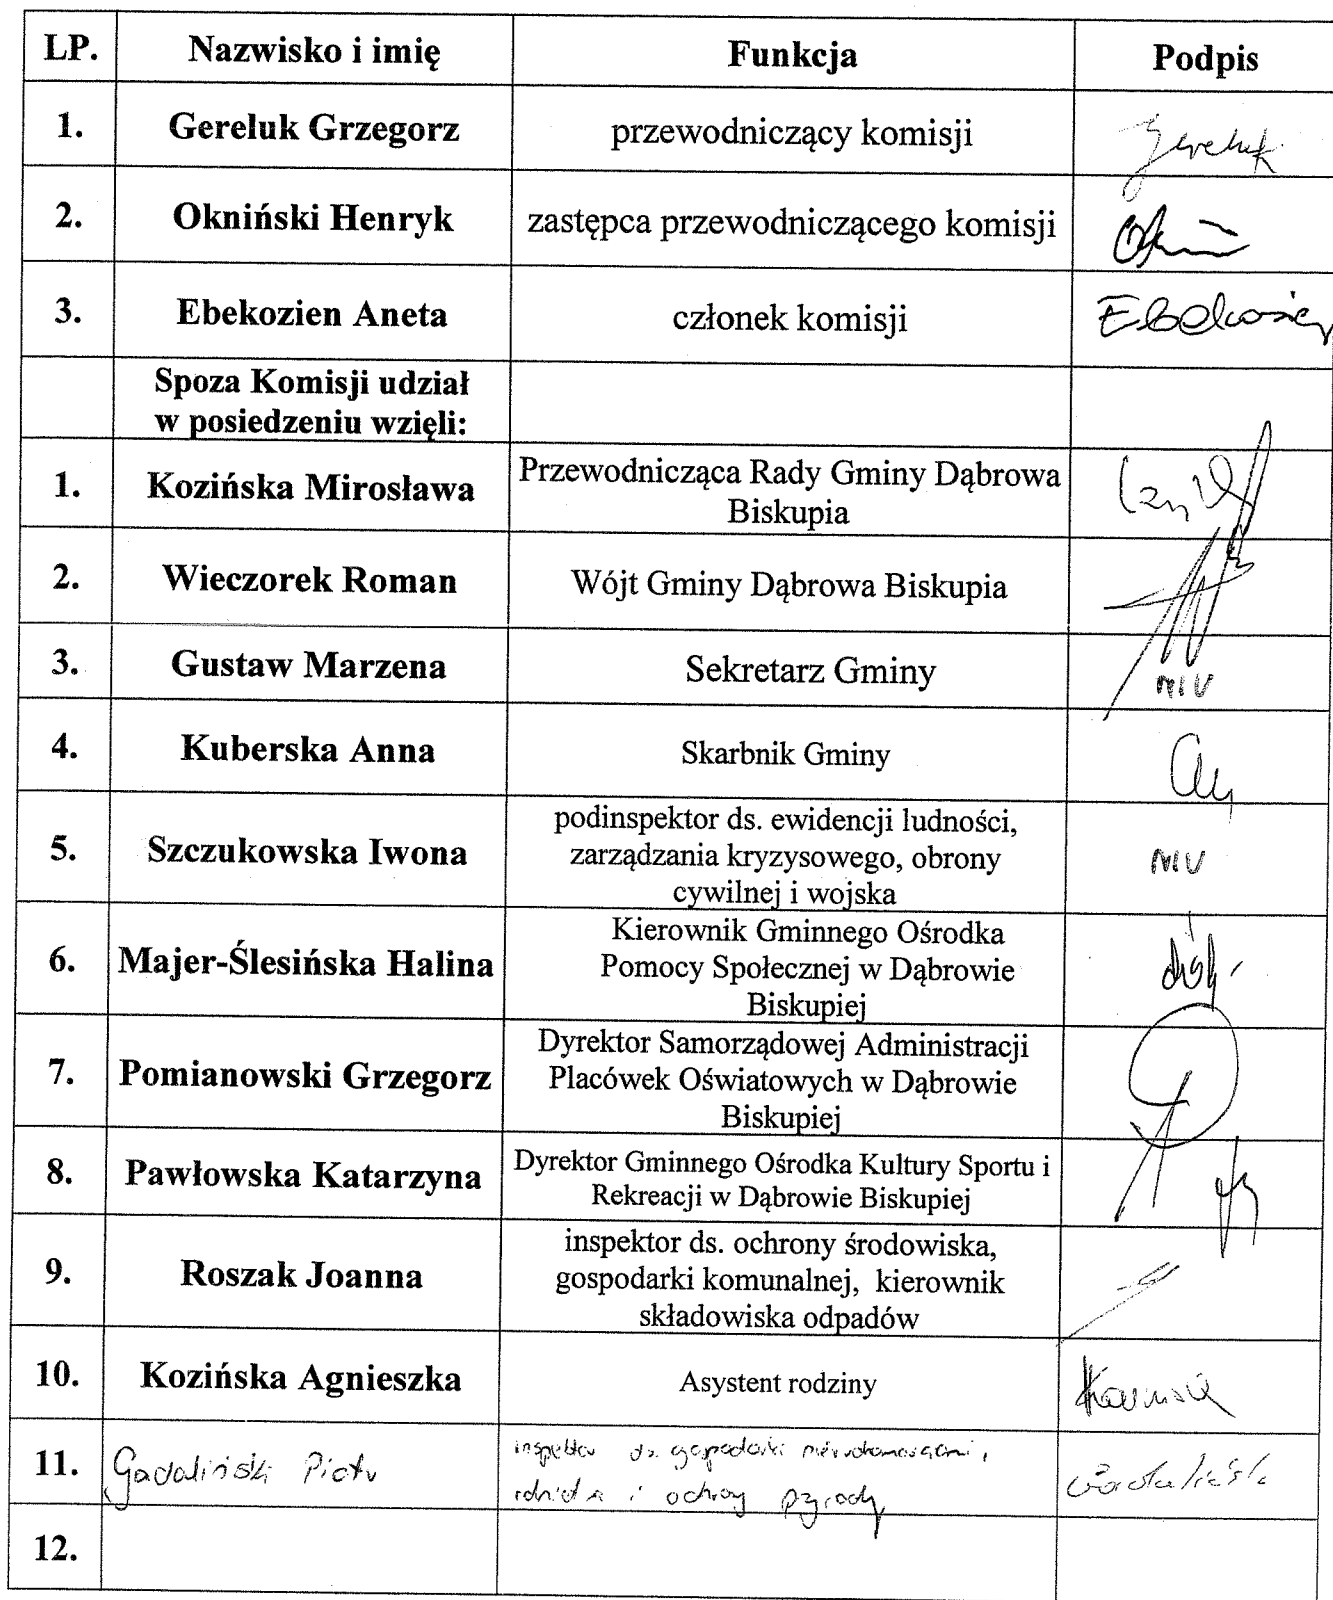 LP. Nazwisko i imię Funkcja Podpis
1. Gereluk Grzegorz przewodniczący komisji Gereluk
2. Okniński Henryk zastępca przewodniczącego komisji
3. Ebekozien Aneta członek komisji Ebekozien
Spoza Komisji udział
w posiedzeniu wzięli:
1. Kozińska Mirosława Przewodnicząca Rady Gminy Dąbrowa
Biskupia
2. Wieczorek Roman Wójt Gminy Dąbrowa Biskupia
3. Gustaw Marzena Sekretarz Gminy
4. Kuberska Anna Skarbnik Gminy
5. Szczukowska Iwona podinspektor ds. ewidencji ludności,
zarządzania kryzysowego, obrony
cywilnej i wojska
6. Majer-Ślesińska Halina Kierownik Gminnego Ośrodka
Pomocy Społecznej w Dąbrowie
Biskupiej
7. Pomianowski Grzegorz Dyrektor Samorządowej Administracji
Placówek Oświatowych w Dąbrowie
Biskupiej
8. Pawłowska Katarzyna Dyrektor Gminnego Ośrodka Kultury Sportu i
Rekreacji w Dąbrowie Biskupiej
9. Roszak Joanna inspektor ds. ochrony środowiska,
gospodarki komunalnej, kierownik
składowiska odpadów
10. Kozińska Agnieszka Asystent rodziny
11. Gadaliński Piotr inspektor ds. gospodarki nieruchomościami,
i ochrony przyrody
12.